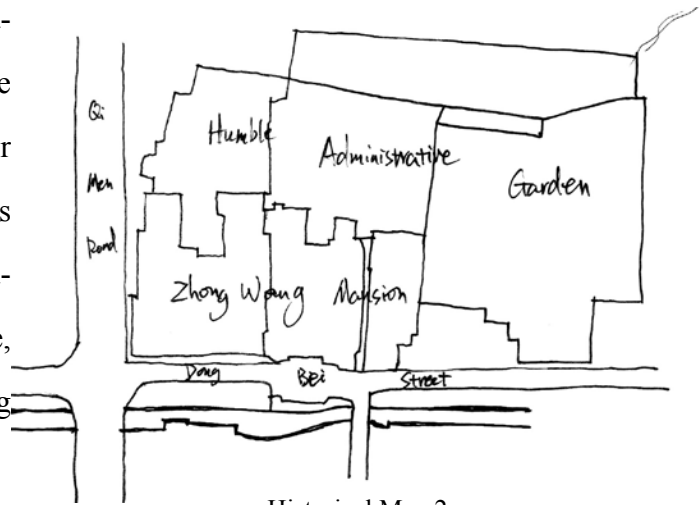 Qi
Men
Road
Humble Administrative Garden
Zhong Wang Mansion
Dong Bei Street